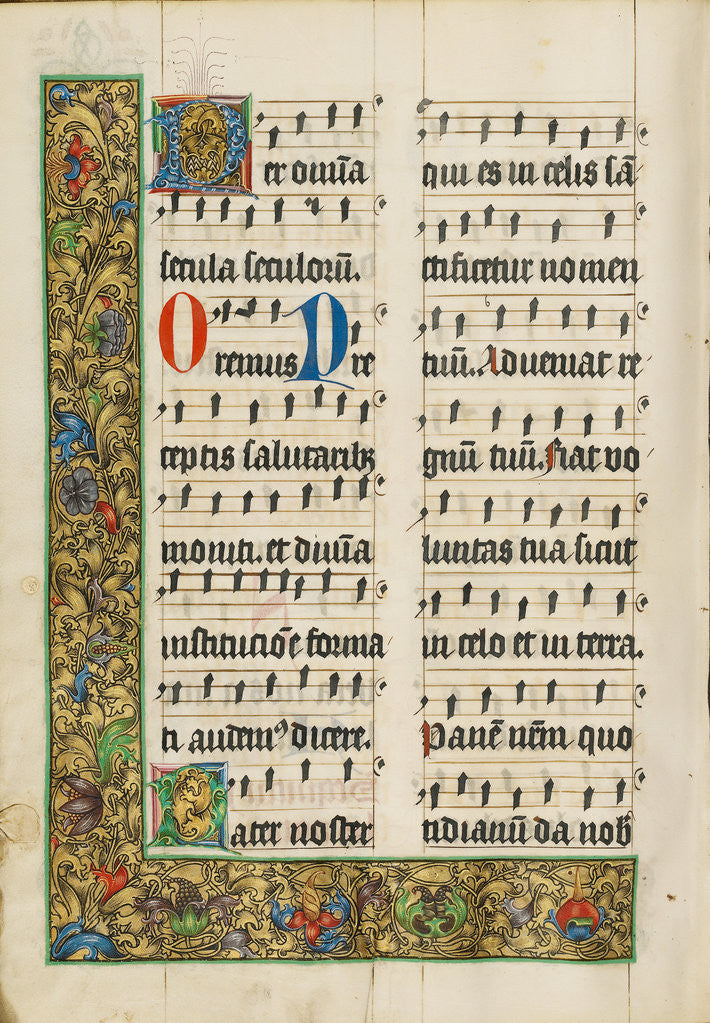 Per om̄ia
secula seculorū.
Oremus Pre
ceptis salutaribꝫ
moniti. et diuīa
institucōe forma
ti audemꝰ dicere.
Pater noster
qui es in celis sā
ctificetur nomen
tuū. Adueniat re
gnū tuū. Fiat vo
luntas tua sicut
in celo et in terra.
Panē nr̄m quo
tidianū da nob̄